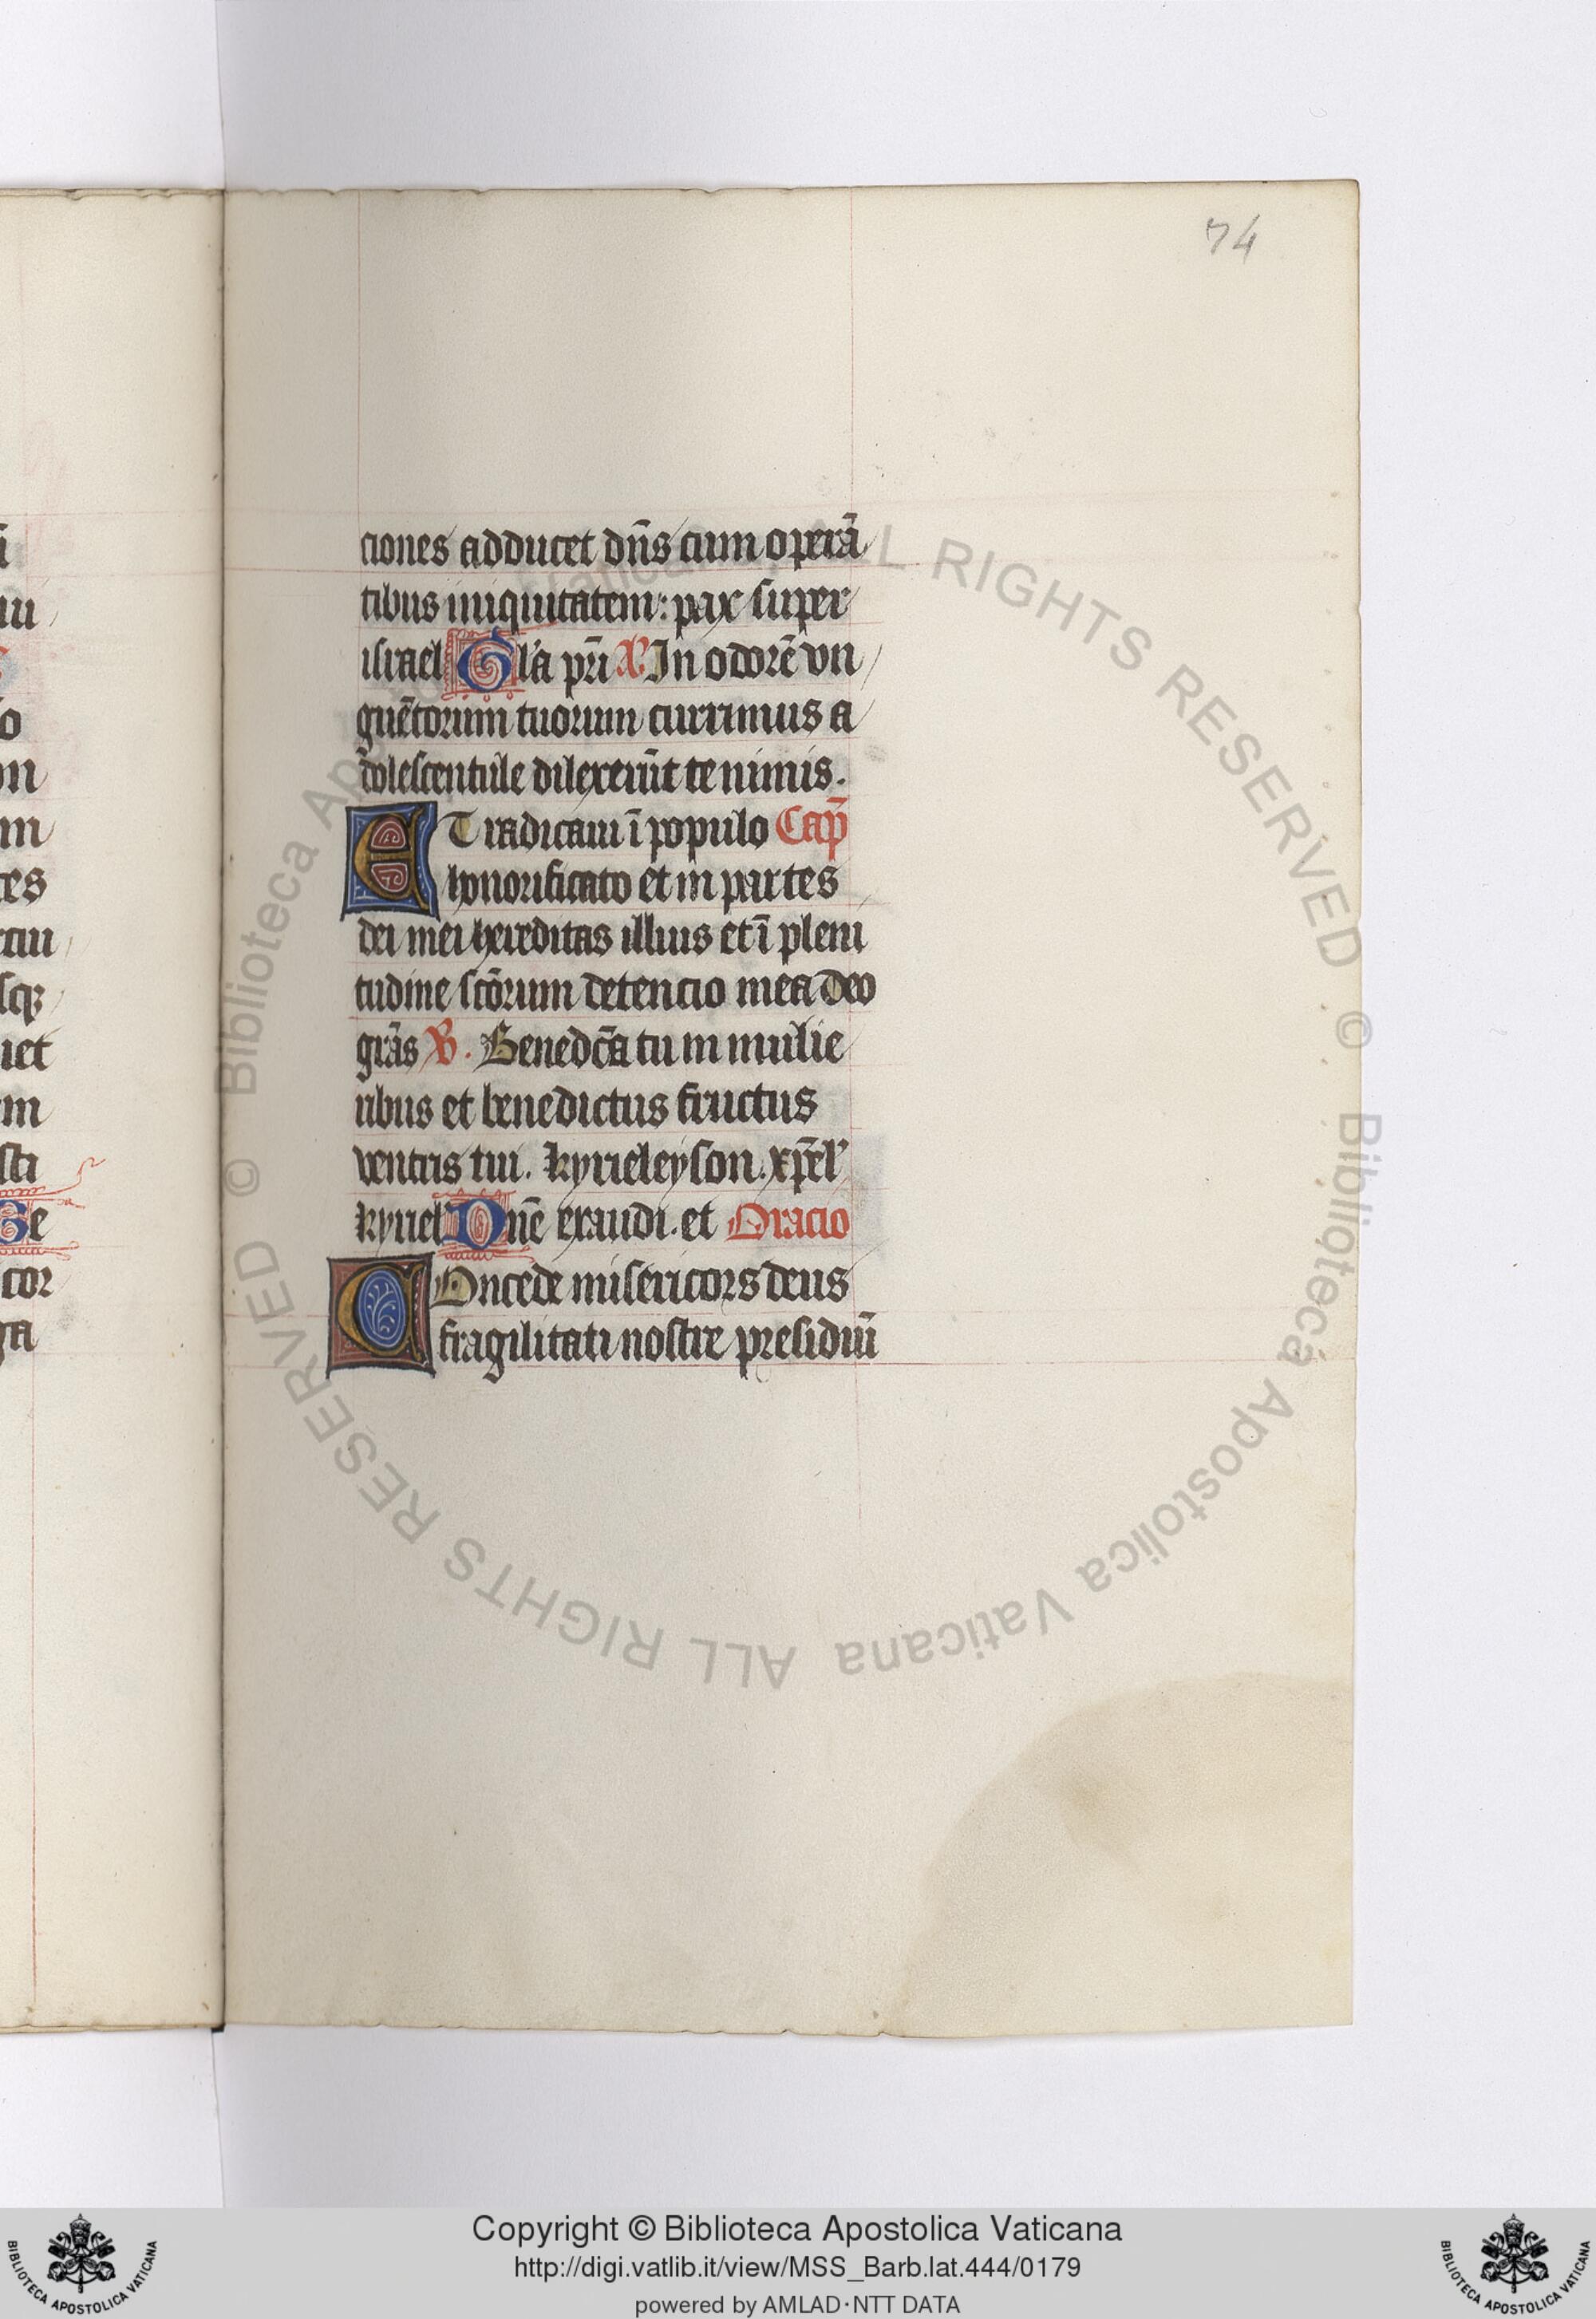 74
ciones adducet dn̄s cum operā
tibus iniquitatem: pax super
israel Gl'a pr̄i In odorē vn
guētorum tuorum currimus a
dolescentule dilexerūt te nimis.
ET radicaui ī populo Cap̄
honorificato et in partes
dei mei hereditas illius et ī pleni
tudine sc̄orum detencio mea deo
grās V. Benedc̄a tu in mulie
ribus et benedictus fructus
ventris tui. kyrieleyson. xp̄el'
kyriel Dn̄e exaudi. et Oracio
COncede misericors deus
fragilitati nostre presidiū
© Biblioteca Apostolica Vaticana ALL RIGHTS RESERVED
© Biblioteca Apostolica Vaticana ALL RIGHTS RESERVED
Copyright © Biblioteca Apostolica Vaticana
http://digi.vatlib.it/view/MSS_Barb.lat.444/0179
powered by AMLAD·NTT DATA
BIBLIOTECA APOSTOLICA VATICANA
BIBLIOTECA APOSTOLICA VATICANA